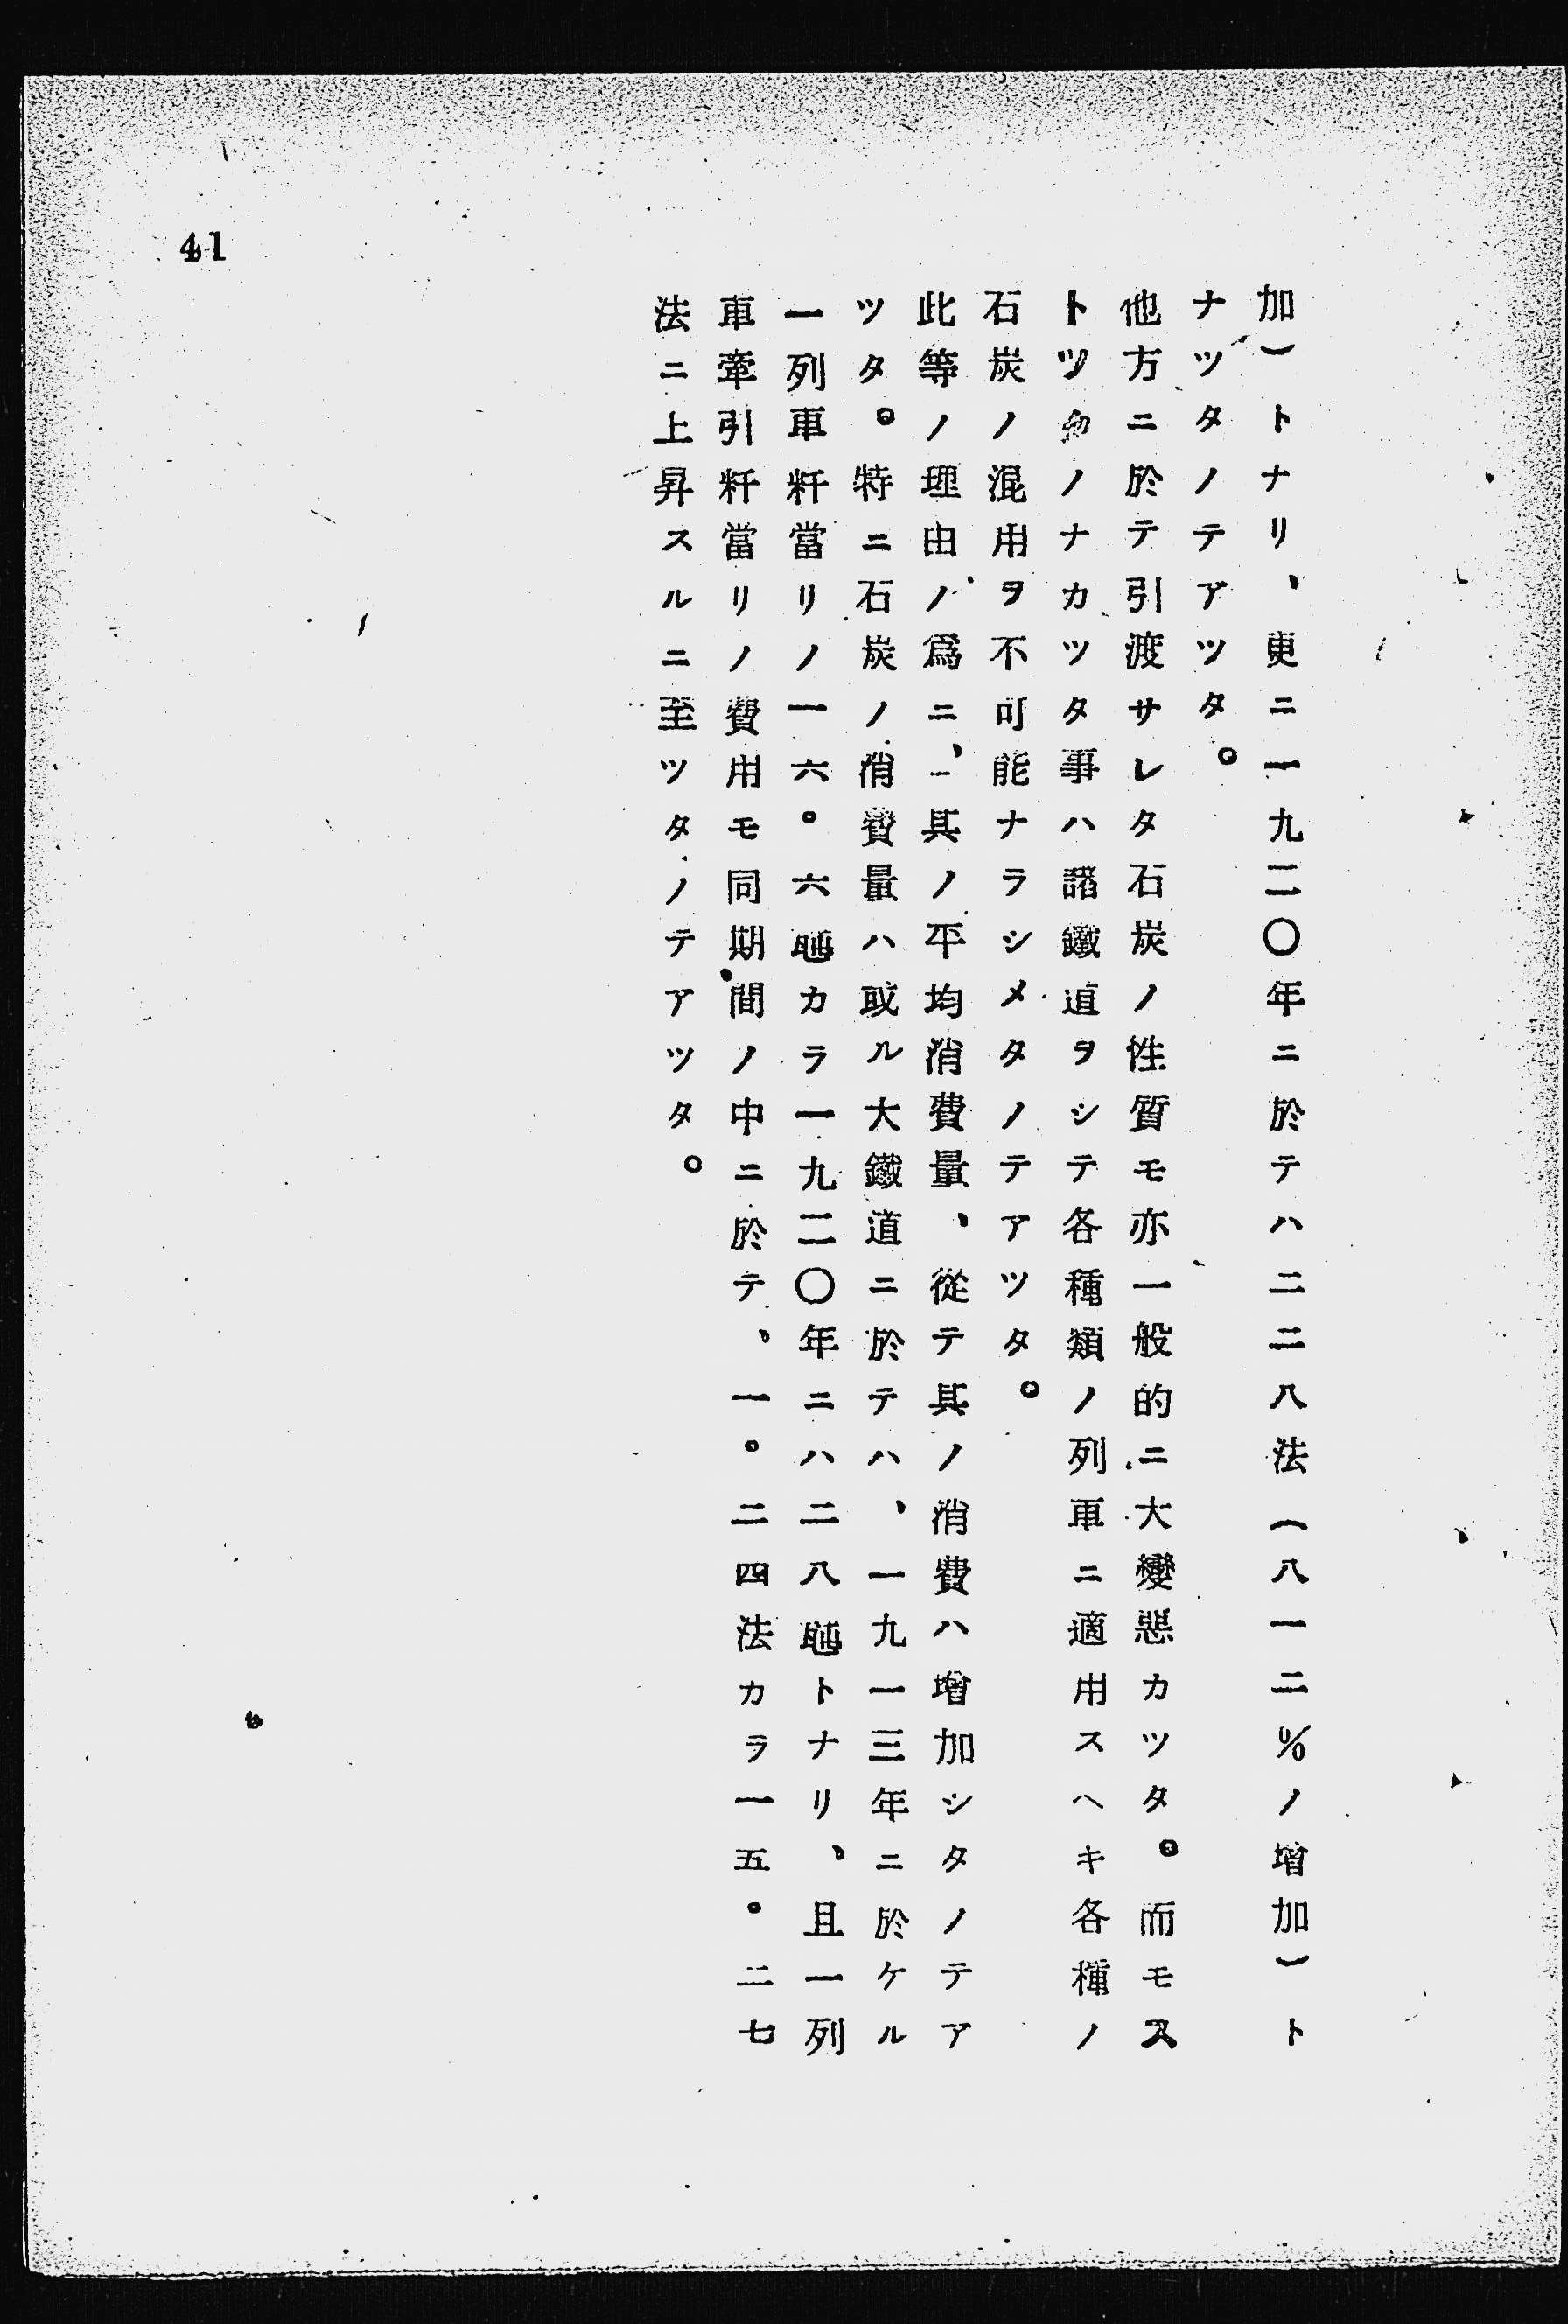 加)トナリ、更ニ一九二〇年ニ於テハ二二八法(八一二%ノ増加)ト
ナツタノテアツタ。
他方ニ於テ引渡サレタ石炭ノ性質モ亦一般的ニ大變惡カツタ。而モス
トツクノナカツタ事ハ諸鐵道ヲシテ各種類ノ列車ニ適用スヘキ各種ノ
石炭ノ混用ヲ不可能ナラシメタノテアツタ。
此等ノ理由ノ爲ニ、其ノ平均消費量、從テ其ノ消費ハ増加シタノテア
ツタ。特ニ石炭ノ消費量ハ或ル大鐵道ニ於テハ、一九一三年ニ於ケル
一列車粁當リノ一六。六瓲カラ一九二〇年ニハ二八瓲トナリ、且一列
車牽引粁當リノ費用モ同期間ノ中ニ於テ、一。二四法カラ一五。二七
法ニ上昇スルニ至ツタノテアツタ。
41